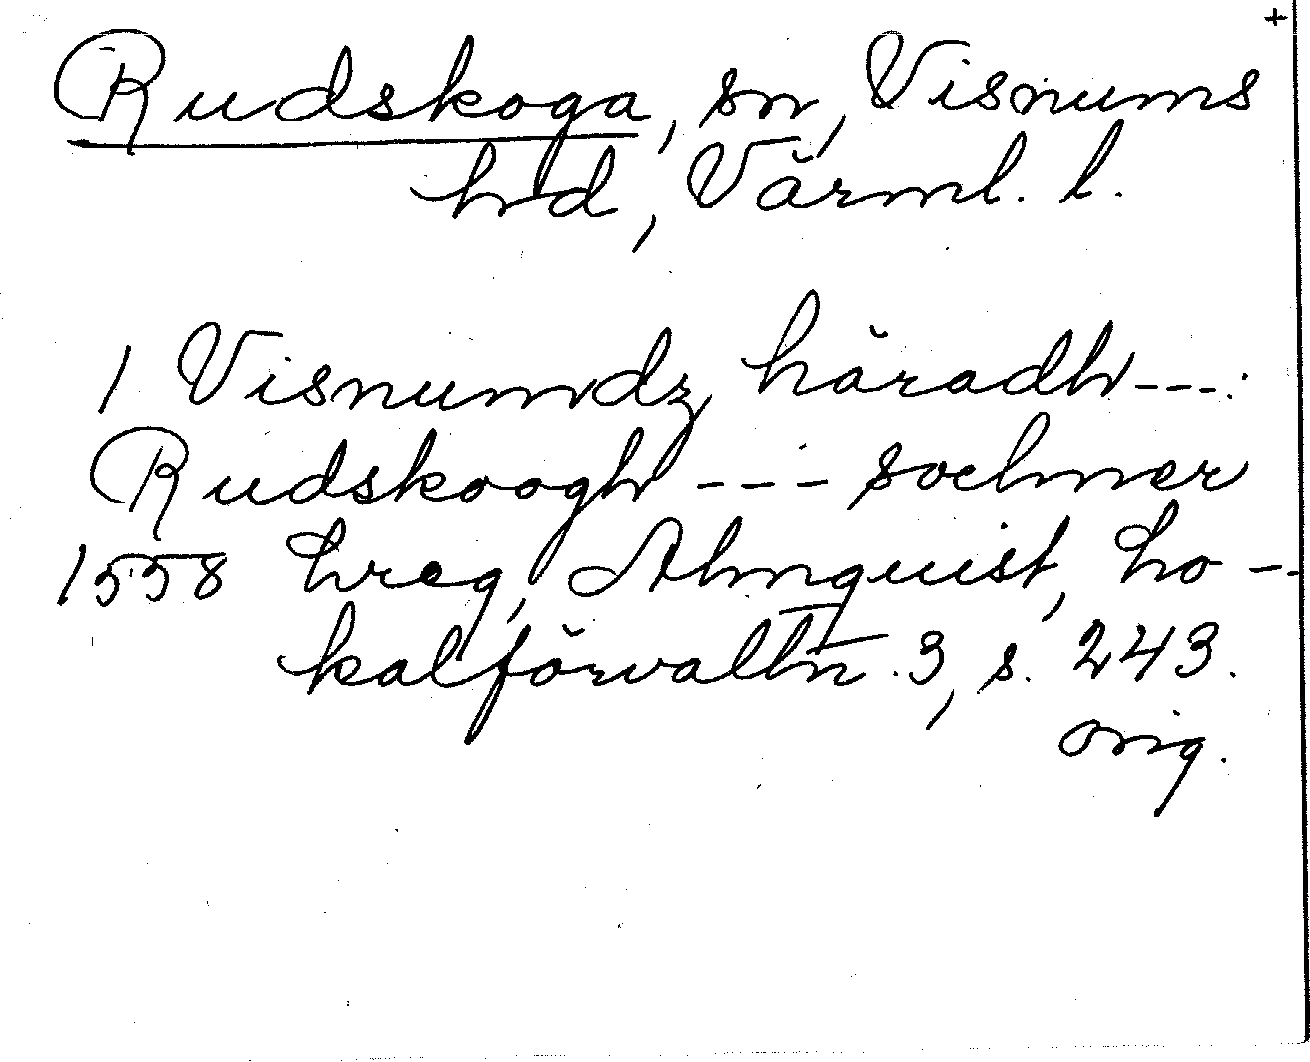 +
Rudskoga, sn, Visnums
hd, Värml. l.
I Visnumdz häradh ---:
Rudskoogh --- sochner
1558 hreg, Almquist, Lo-
kalförvaltn. 3, s. 243.
orig.